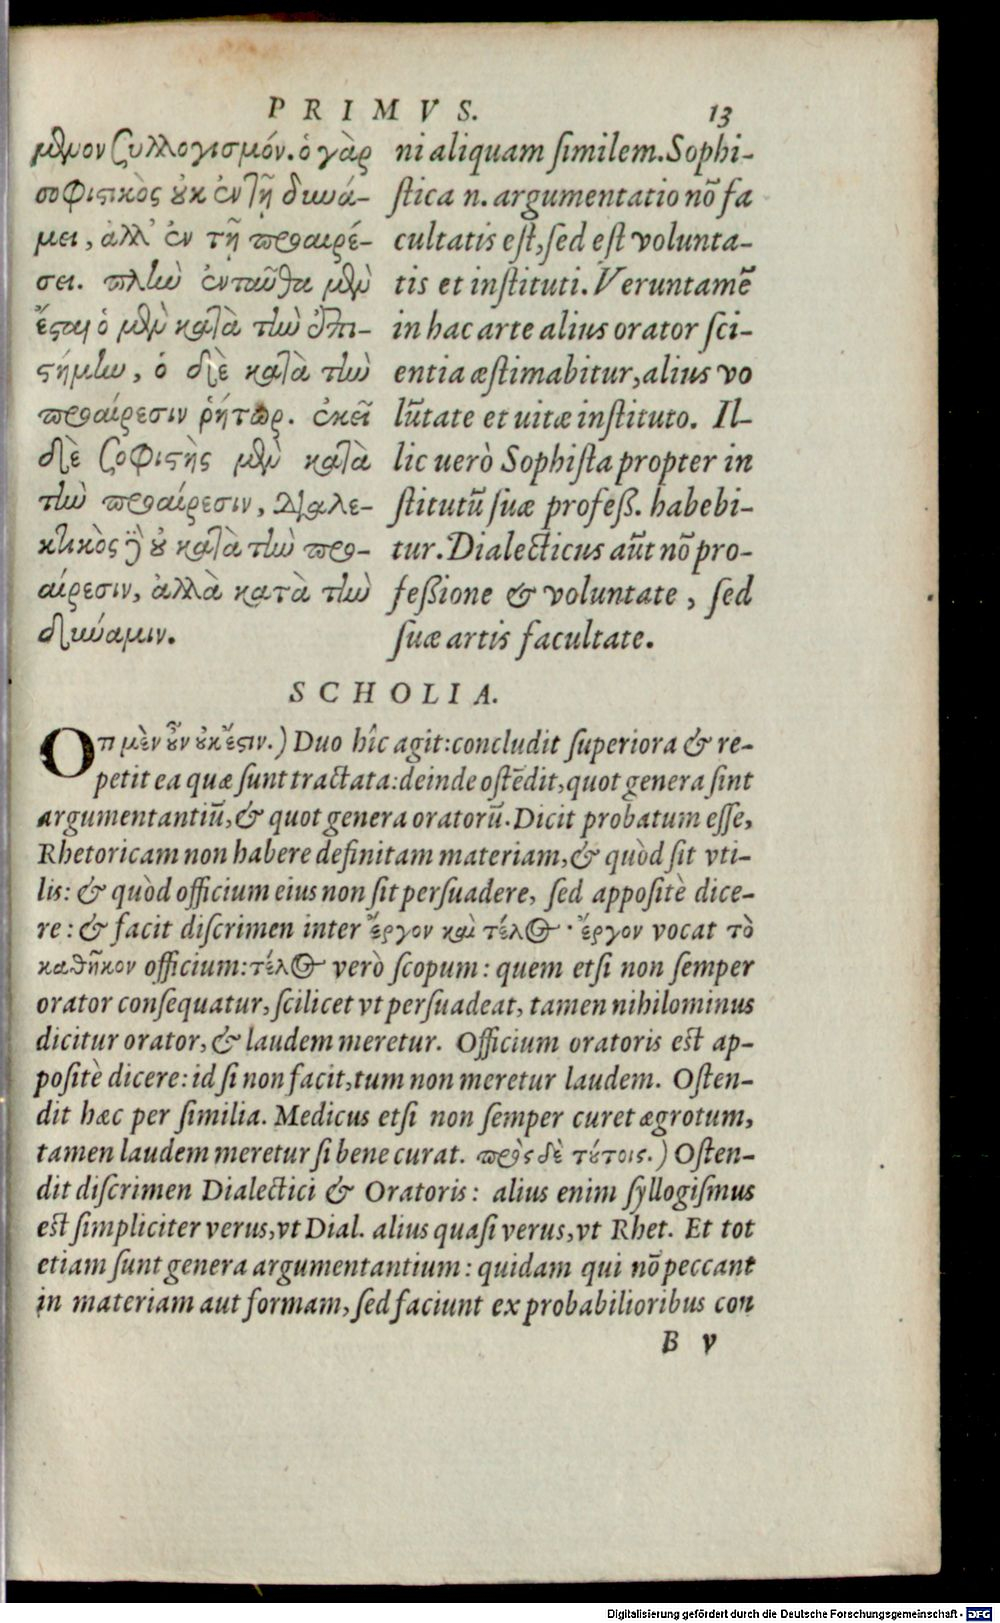 PRIMVS. 13
μθυον συλλογισμόν. ὁ γὰρ
σοφιστικὸς οὐκ ἐν τῇ δυνά-
μει, ἀλλ' ἐν τῇ προαιρέ-
σει. πλὴν ἐνταῦθα μὲν
ἔσται ὁ μὲν κατὰ τὴν ἐπι-
στήμην, ὁ δὲ κατὰ τὴν
προαίρεσιν ῥήτωρ. ἐκεῖ
δὲ σοφιστὴς μὲν κατὰ
τὴν προαίρεσιν, διαλε-
κτικὸς δὲ οὐ κατὰ τὴν προ-
αίρεσιν, ἀλλὰ κατὰ τὴν
δύναμιν.
ni aliquam ſimilem. Sophi-
ſtica n. argumentatio nõ fa
cultatis eſt, ſed eſt volunta-
tis et inſtituti. Veruntamẽ
in hac arte alius orator ſci-
entia æſtimabitur, alius vo
lũtate et uitæ inſtituto. Il-
lic uerò Sophiſta propter in
ſtitutũ ſuæ profeß. habebi-
tur. Dialecticus aũt nõ pro-
feßione & voluntate, ſed
ſuæ artis facultate.
SCHOLIA.
Οπ μὲν οὖν οὐκ ἔστιν.) Duo hîc agit: concludit ſuperiora & re-
petit ea quæ ſunt tractata: deinde oſtẽdit, quot genera ſint
argumentantiũ, & quot genera oratorũ. Dicit probatum eſſe,
Rhetoricam non habere definitam materiam, & quòd ſit vti-
lis: & quòd officium eius non ſit perſuadere, ſed appoſitè dice-
re: & facit diſcrimen inter ἔργον καὶ τέλος. ἔργον vocat τὸ
καθῆκον officium: τέλος verò ſcopum: quem etſi non ſemper
orator conſequatur, ſcilicet vt perſuadeat, tamen nihilominus
dicitur orator, & laudem meretur. Officium oratoris eſt ap-
poſitè dicere: id ſi non facit, tum non meretur laudem. Oſten-
dit hæc per ſimilia. Medicus etſi non ſemper curet ægrotum,
tamen laudem meretur ſi bene curat. πρὸς δὲ τούτοις.) Oſten-
dit diſcrimen Dialectici & Oratoris: alius enim ſyllogiſmus
eſt ſimpliciter verus, vt Dial. alius quaſi verus, vt Rhet. Et tot
etiam ſunt genera argumentantium: quidam qui nõ peccant
in materiam aut formam, ſed faciunt ex probabilioribus con
B v
Digitalisierung gefördert durch die Deutsche Forschungsgemeinschaft - DFG